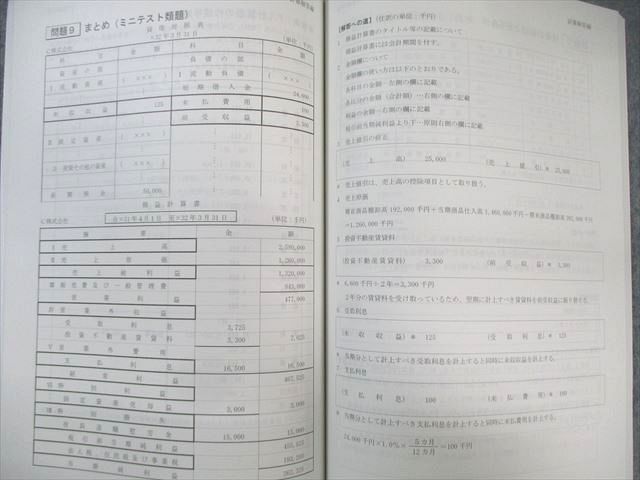 問題9 まとめ(ミニテスト類題)
貸借対照表
×32年3月31日
C株式会社 (単位:千円)
科目 金額 科目 金額
資産の部 負債の部
Ⅰ 流動資産 (×××) Ⅰ 流動負債 (×××)
短期借入金 24,000
未収収益 125 未払費用 100
前受収益 3,300
Ⅱ 固定資産 (×××)
3.投資その他の資産 (×××)
長期預金 50,000
損益計算書
自×31年4月1日 至×32年3月31日
C株式会社 (単位:千円)
摘要 金額
Ⅰ 売上高 2,580,000
Ⅱ 売上原価 1,260,000
売上総利益 1,320,000
Ⅲ 販売費及び一般管理費 843,000
営業利益 477,000
Ⅳ 営業外収益
受取利息 3,725
投資不動産賃貸料 3,300 7,025
Ⅴ 営業外費用
支払利息 16,500 16,500
経常利益 467,525
特別利益
固定資産売却益 3,000 3,000
特別損失
役員退職慰労金 15,000 15,000
税引前当期純利益 455,525
法人税、住民税及び事業税
当期純利益
【解答への道】(仕訳の単位:千円)
1 損益計算書のタイトル等の記載について
損益計算書には会計期間を付す。
2 金額欄について
金額欄の使い方は以下のとおりである。
各科目の金額…左側の欄に記載
各区分の金額(合計額)…右側の欄に記載
利益の金額…右側の欄に記載
税引前当期純利益より下…原則右側の欄に記載
3 売上値引の修正
(売上高) 25,000 (売上値引)※ 25,000
※ 売上値引は、売上高の控除項目として取り扱う。
4 売上原価
期首商品棚卸高192,000千円+当期商品仕入高1,460,000千円-期末商品棚卸高392,000千円
=1,260,000千円
5 投資不動産賃貸料
(投資不動産賃貸料) 3,300 (前受収益)※ 3,300
※ 6,600千円÷2年=3,300千円
2年分の賃貸料を受け取っているため、翌期に計上すべき賃貸料を前受収益に振り替える。
6 受取利息
(未収収益)※ 125 (受取利息) 125
※ 当期分として計上すべき受取利息を計上すると同時に未収収益を計上する。
7 支払利息
(支払利息) 100 (未払費用)※ 100
※ 当期分として計上すべき支払利息を計上すると同時に未払費用を計上する。
24,000千円×1.0%×5カ月/12カ月=100千円